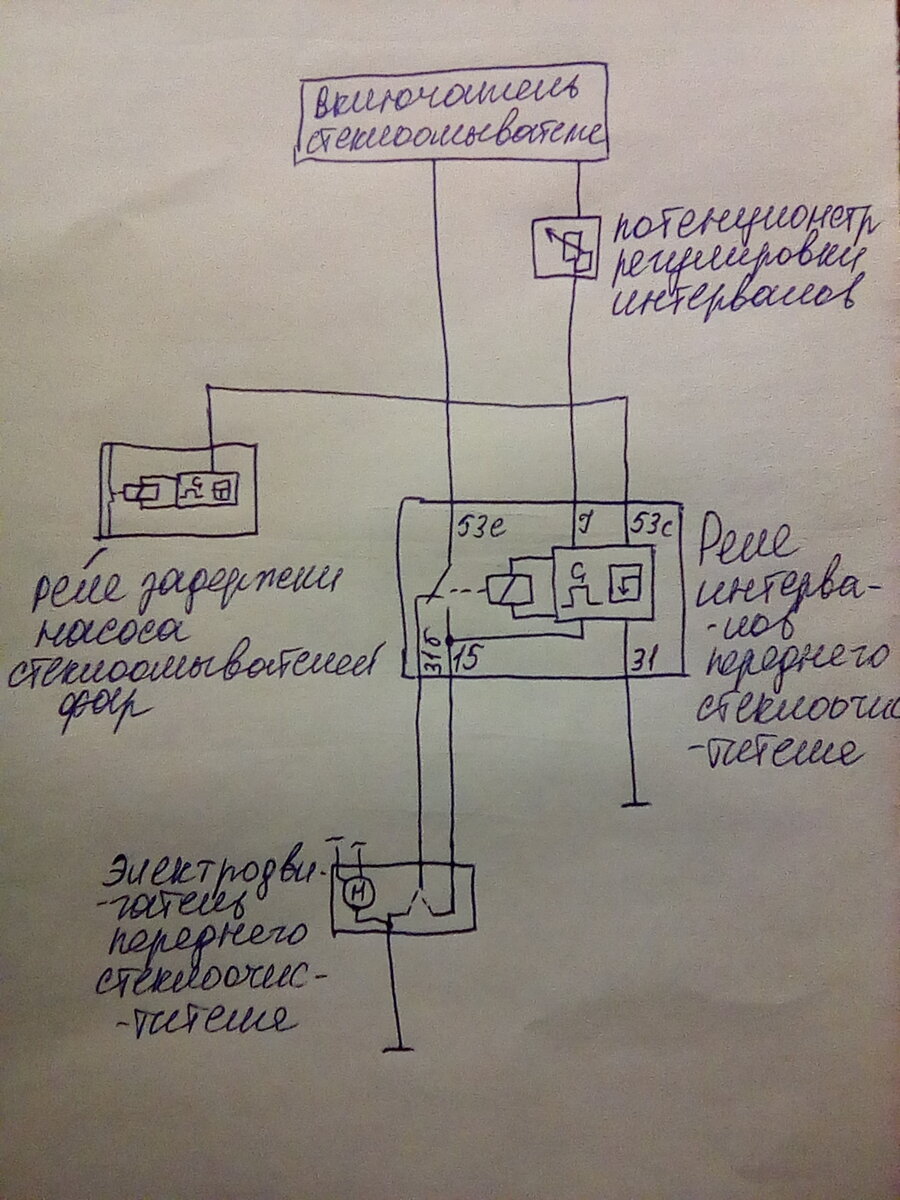 включатель
стеклоомывателе
потенционетр
регулировки
интервалов
53е
J
53с
Реле
интерва-
-лов
переднего
стеклоочис
-тителе
31б
15
31
реле задержки
насоса
стеклоомывателей
фар
Электродви-
-гатель
переднего
стеклоочис-
-тителе
М